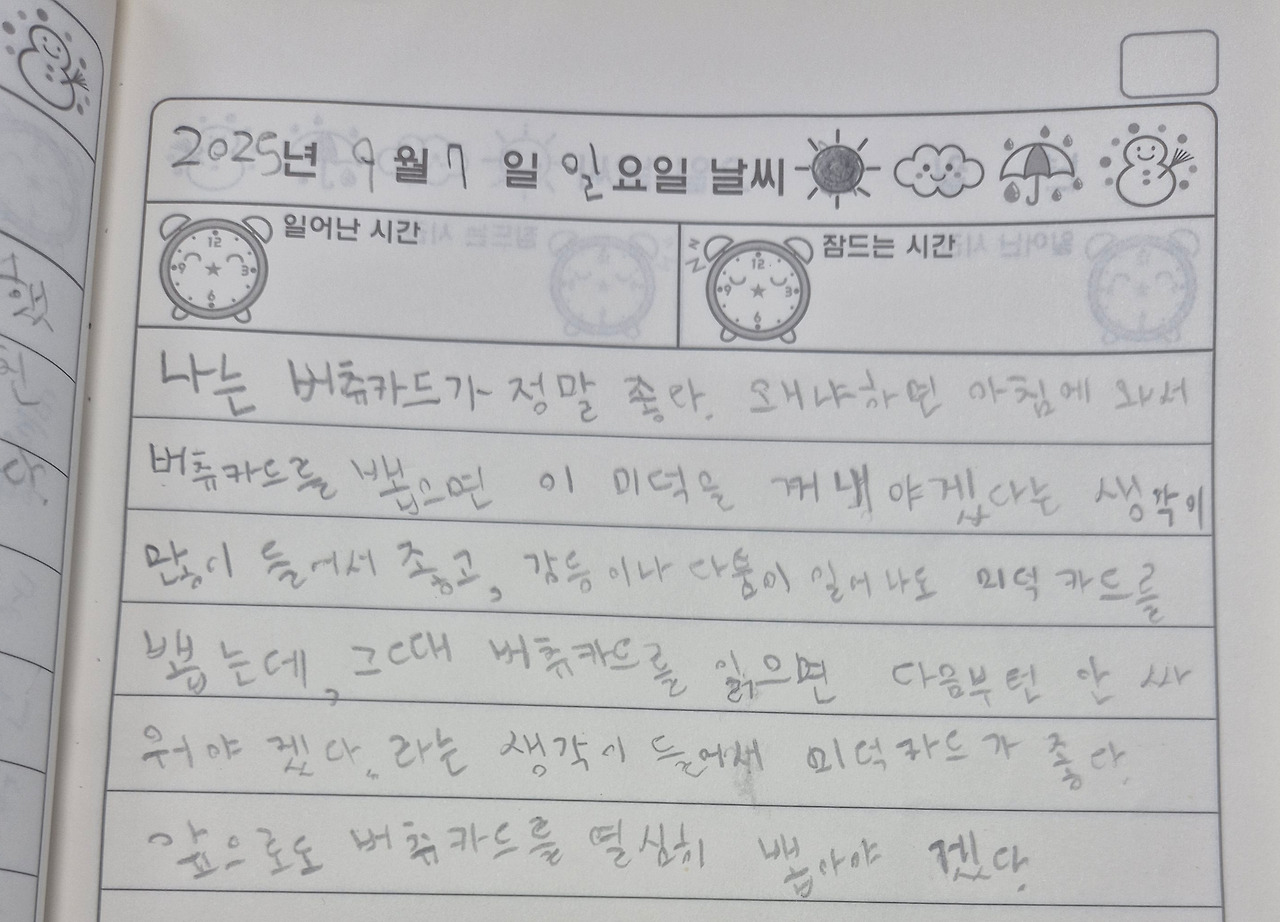 2025년 9월 7일 일요일 날씨
일어난 시간
잠드는 시간
나는 버츄카드가 정말 좋다. 왜냐하면 아침에 와서
버츄카드를 뽑으면 이 미덕을 꺼내야겠다는 생각이
많이 들어서 좋고, 갈등이나 다툼이 일어나도 미덕카드를
뽑는데, 그때 버츄카드를 읽으면 다음부턴 안 싸
워야 겠다. 라는 생각이 들어서 미덕카드가 좋다.
앞으로도 버츄카드를 열심히 뽑아야 겠다.